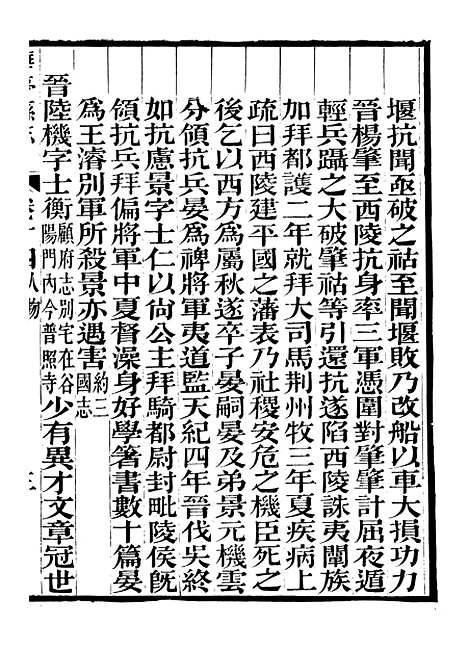 堰抗聞亟破之祜至聞堰敗乃改船以車大損功力
晉楊肇至西陵抗身率三軍憑圍對肇肇計屈夜遁
輕兵躡之大破肇祜等引還抗遂陷西陵誅夷闡族
加拜都護二年就拜大司馬荆州牧三年夏疾病上
疏曰西陵建平國之藩表乃社稷安危之機臣死之
後乞以西方爲屬秋遂卒子晏嗣晏及弟景元機雲
分領抗兵晏爲裨將軍夷道監天紀四年晉伐吳終
如抗慮景字士仁以尙公主拜騎都尉封毗陵侯旣
領抗兵拜偏將軍中夏督澡身好學箸書數十篇晏
爲王濬別軍所殺景亦遇害約三國志
晉陸機字士衡顧府志別宅在谷陽門內今普照寺少有異才文章冠世
人物 三